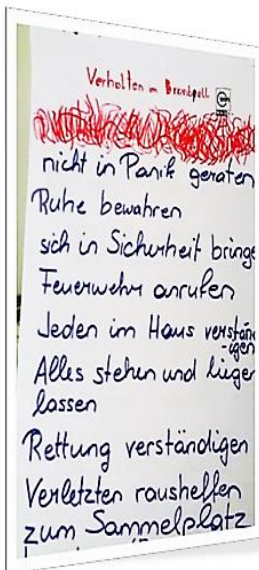 Verhalten im Brandfall
nicht in Panik geraten
Ruhe bewahren
sich in Sicherheit bringe
Feuerwehr anrufen
Jeden im Haus verstän
-igen
Alles stehen und lieger
lassen
Rettung verständigen
Verletzten raushelfen
zum Sammelplatz